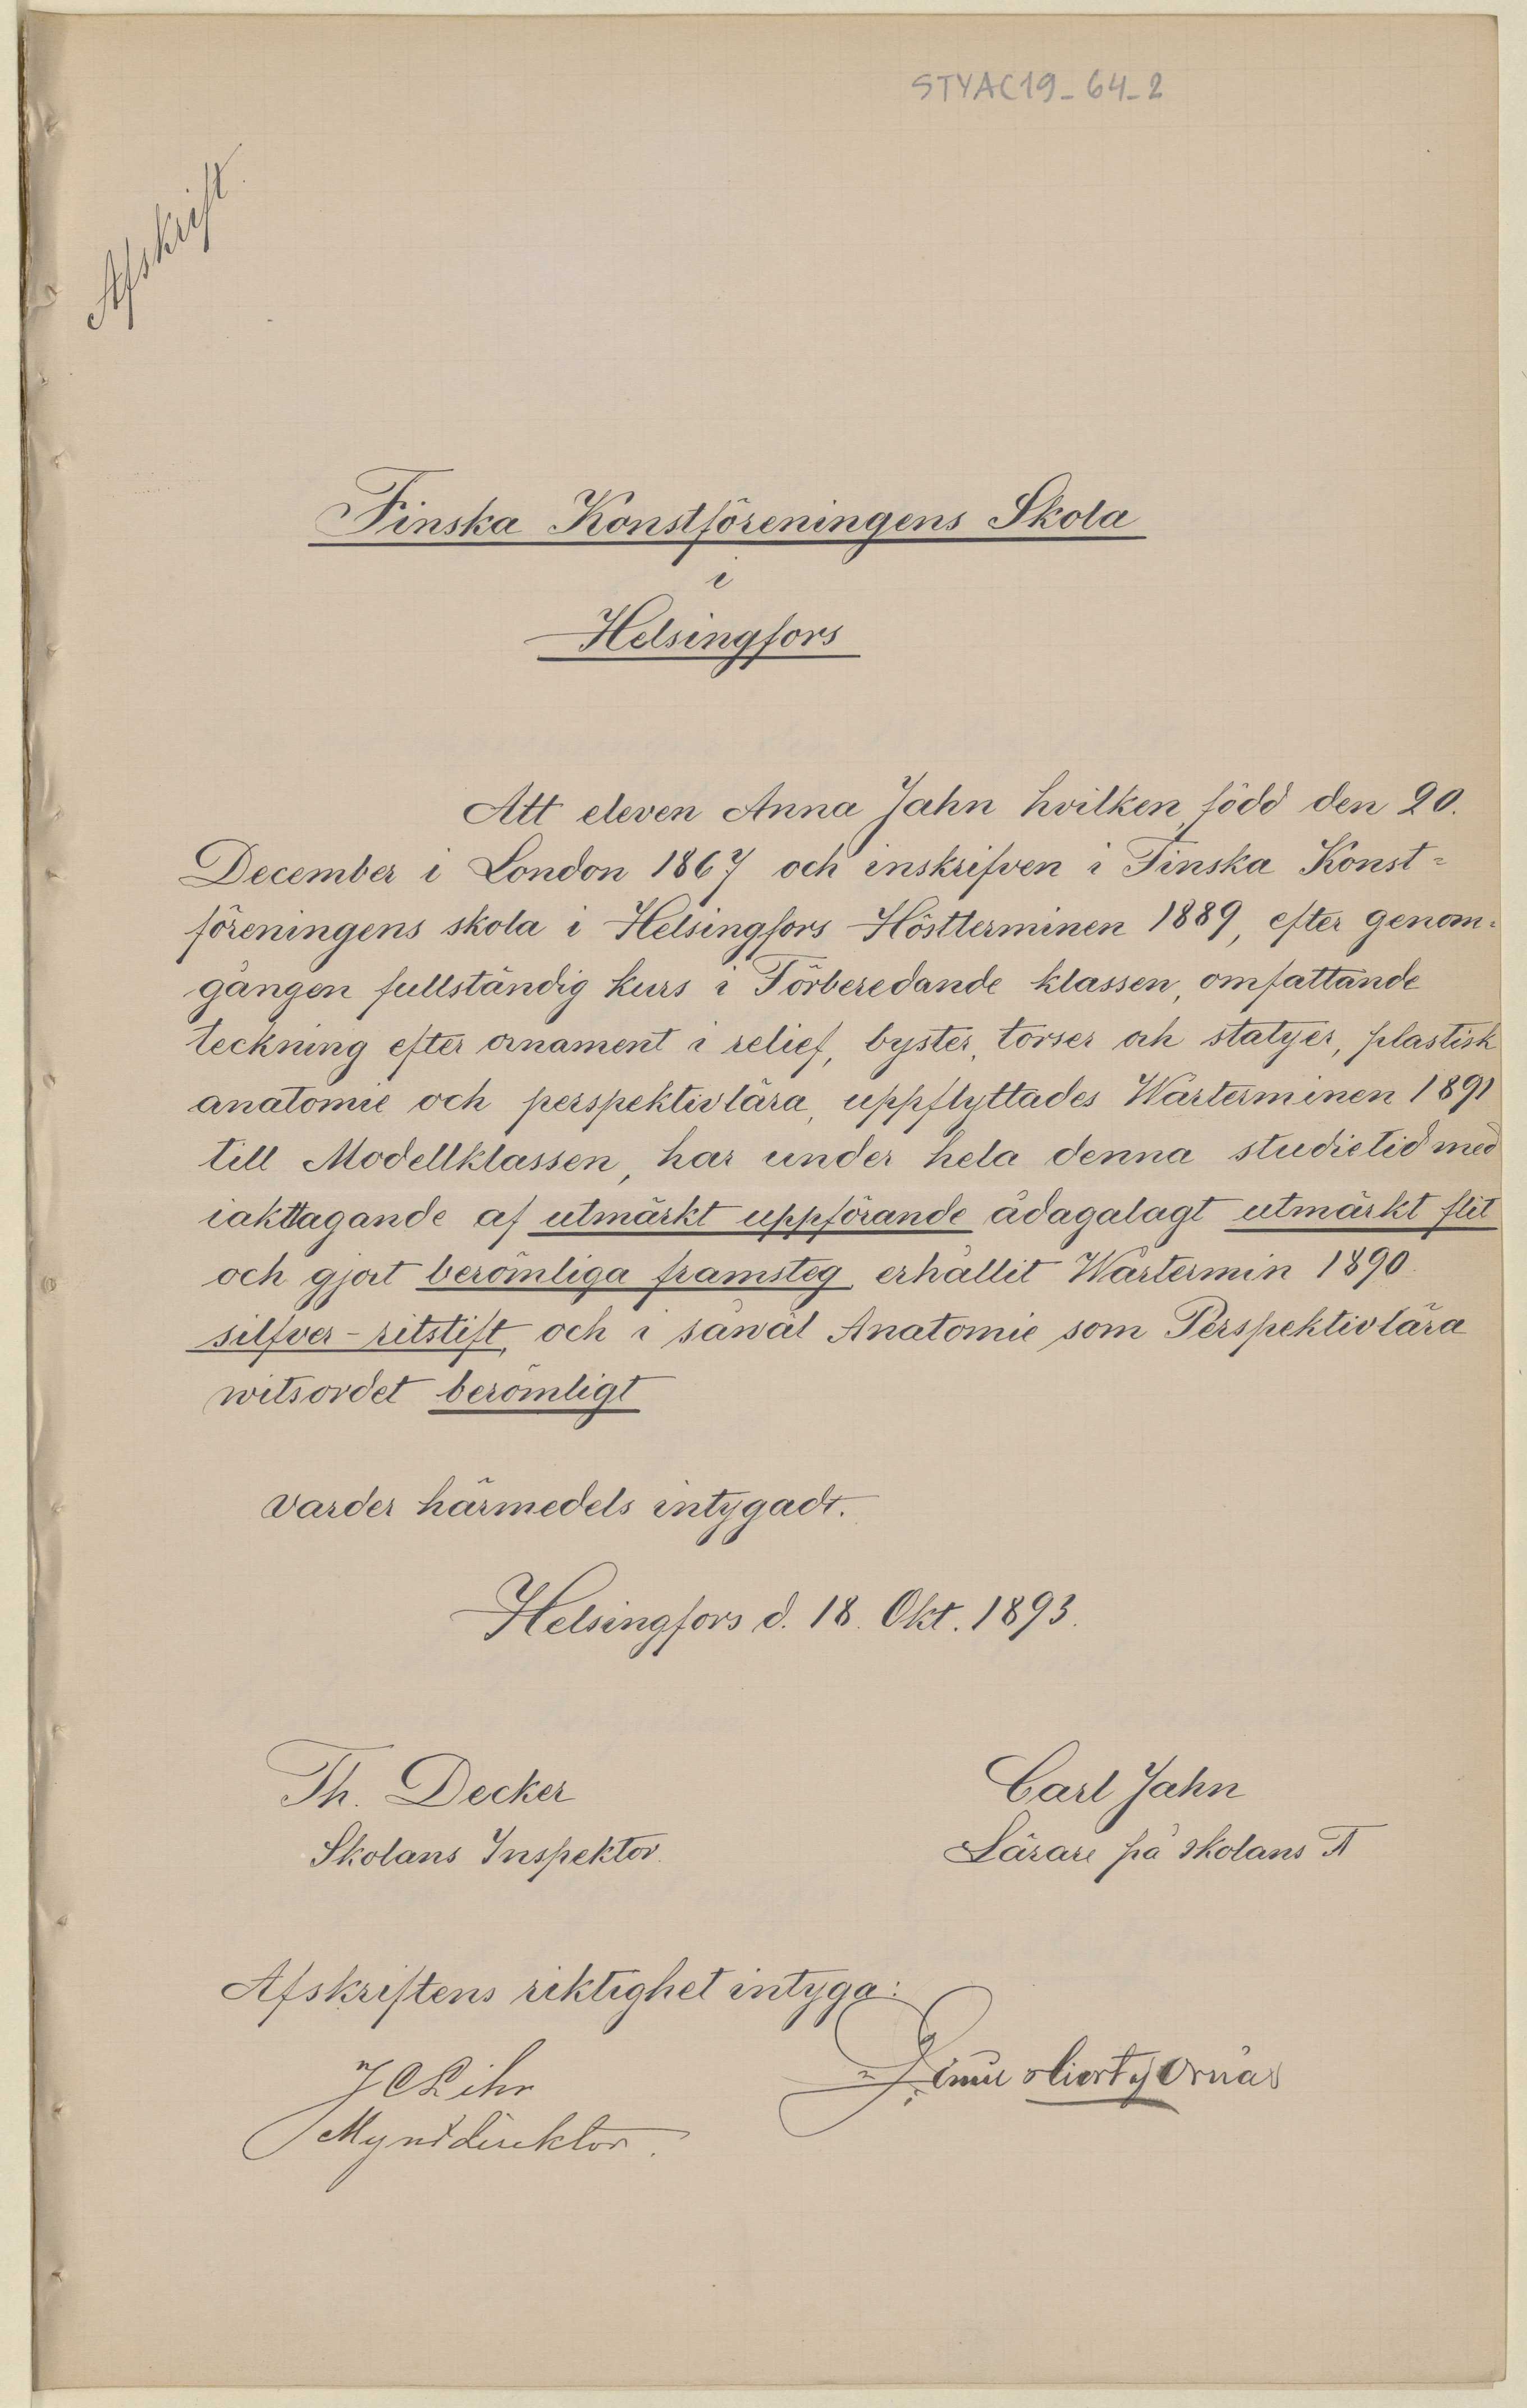 STYAC19_64_2
Afskrift.
Finska Konstföreningens Skola
i
Helsingfors
Att eleven Anna Jahn hvilken, född den 20.
December i London 1867 och inskrifven i Finska Konst=
föreningens skola i Helsingfors Höstterminen 1889, efter genom=
gången fullständig kurs i Förberedande klassen, omfattande
teckning efter ornament i relief, byster, torser och statyer, plastisk
anatomie och perspektivlära, uppflyttades Wårterminen 1891
till Modellklassen, har under hela denna studietid med
iakttagande af utmärkt uppförande ådagalagt utmärkt flit
och gjort berömliga framsteg, erhållit Wårtermin 1890
silfver-ritstift, och i såwäl Anatomie som Perspektivlära
witsordet berömligt
varder härmedels intygadt.
Helsingfors d. 18. Okt. 1893.
Th. Decker
Carl Jahn
Skolans Inspektor.
Lärare på skolans A
Afskriftens riktighet intyga:
J C Lihr
Myntdirektor.